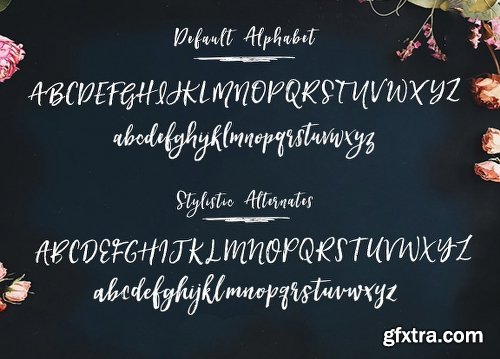 Default Alphabet
ABCDEFGHIJKLMNOPQRSTUVWXYZ
abcdefghijklmnopqrstuvwxyz
Stylistic Alternates
ABCDEFGHIJKLMNOPQRSTUVWXYZ
abcdefghijklmnopqrstuvwxyz
gfxtra.com